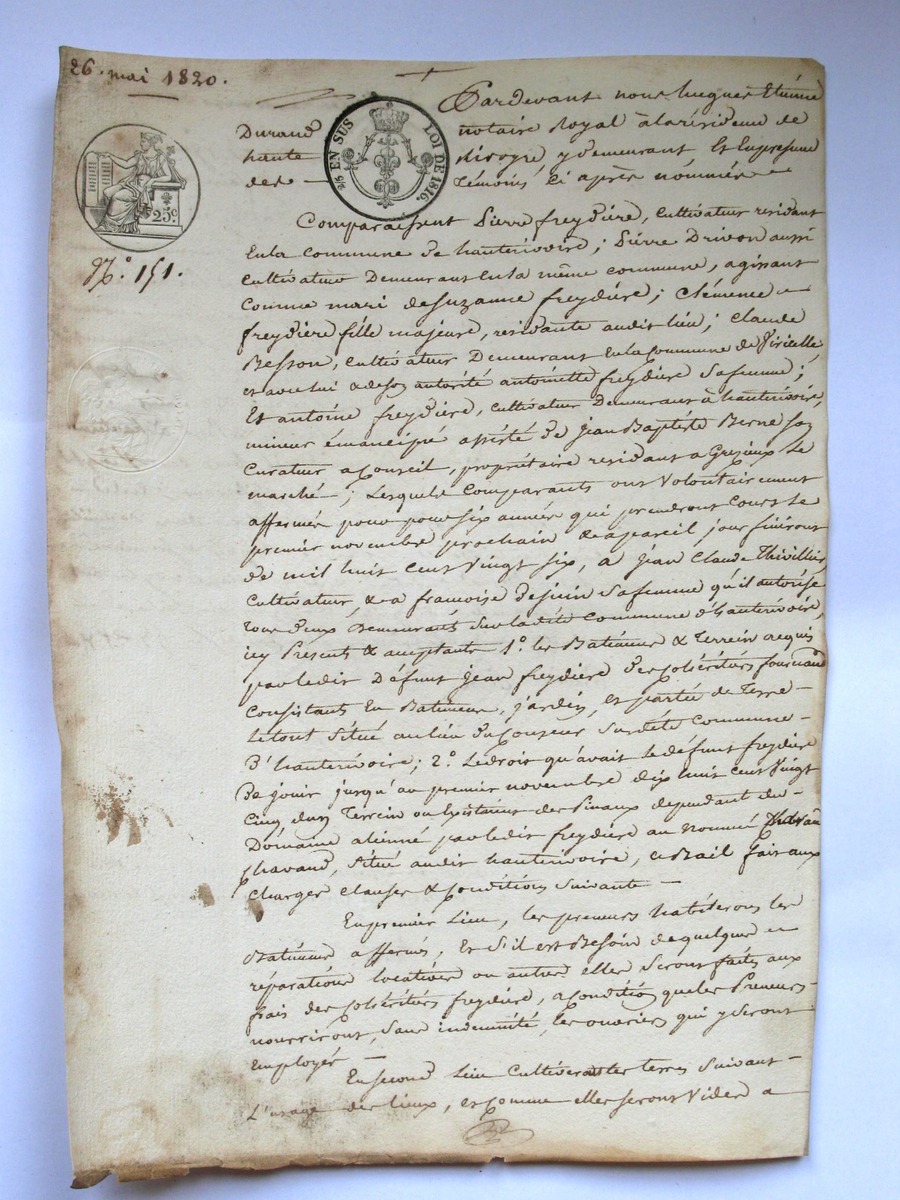 26. mai 1820.
Pardevant nous hugues Etienne
Durand notaire Royal à la résidence de
haute rivoire, y demeurant Et En presence
des témoins Ci après nommés
2/5 EN SUS LOI DE 1816.
25c.
N.o 151.
Comparaissent Pierre freydière, Cultivateur residant
En la commune de hauterivoire; Pierre Drivon aussi
Cultivateur Demeurant En la même commune, agissant
Comme mari de Suzanne freydière; Clémence
freydière fille majeure, residante audit lieu; Claude
Besson, Cultivateur Demeurant En la Commune de Viricelle,
et avec lui & de son autorité antoinette freydière Sa femme;
Et antoine freydière, Cultivateur Demeurant à hauterivoire,
mineur émancipé assisté de Jean Baptiste Berne son
Curateur a Conseil, propriétaire residant a Grezieux Le
marché; Lesquels Comparants ont Volontairement
affermé pour pour six années qui prendront Cours Le
premier novembre prochain & a pareil jour finiront
de mil huit Cent Vingt Six, a Jean Claude Thivillier
Cultivateur, & a francoise dejuin Sa femme qu'il autorise
tous deux Demeurants Sur la dite Commune d'hauterivoire,
icy Presents & acceptants 1.o les Batimens & Terrein acquis
par ledit Défunt Jean freydière des Cohéritiers
Consistants En Batimens, jardin, et partie de Terre
le tout Situé au lieu du Sur dite Commune
D'hauterivoire; 2.o Le droit qu'avait le défunt freydière
De jouir jusqu'au premier novembre dix huit Cent Vingt
Cinq d'un Terrein ou Existaient des Pinaux dependant du
Domaine aliénné par ledit freydière au nommé
Chavand, Situé audit hauterivoire, ce Bail fait aux
Charges Clauses & Conditions Suivante
En premier Lieu, les preneurs habiterons les
Batimens affermés, Et S'il est Besoin de quelques
réparations locatives ou autres elles Seront faites aux
frais des Cohéritiers freydière, a Condition que les Preneurs
nourriront, Sans indemnité, les ouvriers qui y Seront
Employés
En Second Lieu Cultiveront les terres Suivant
L'usage des lieux, et Comme elles seront Vides a